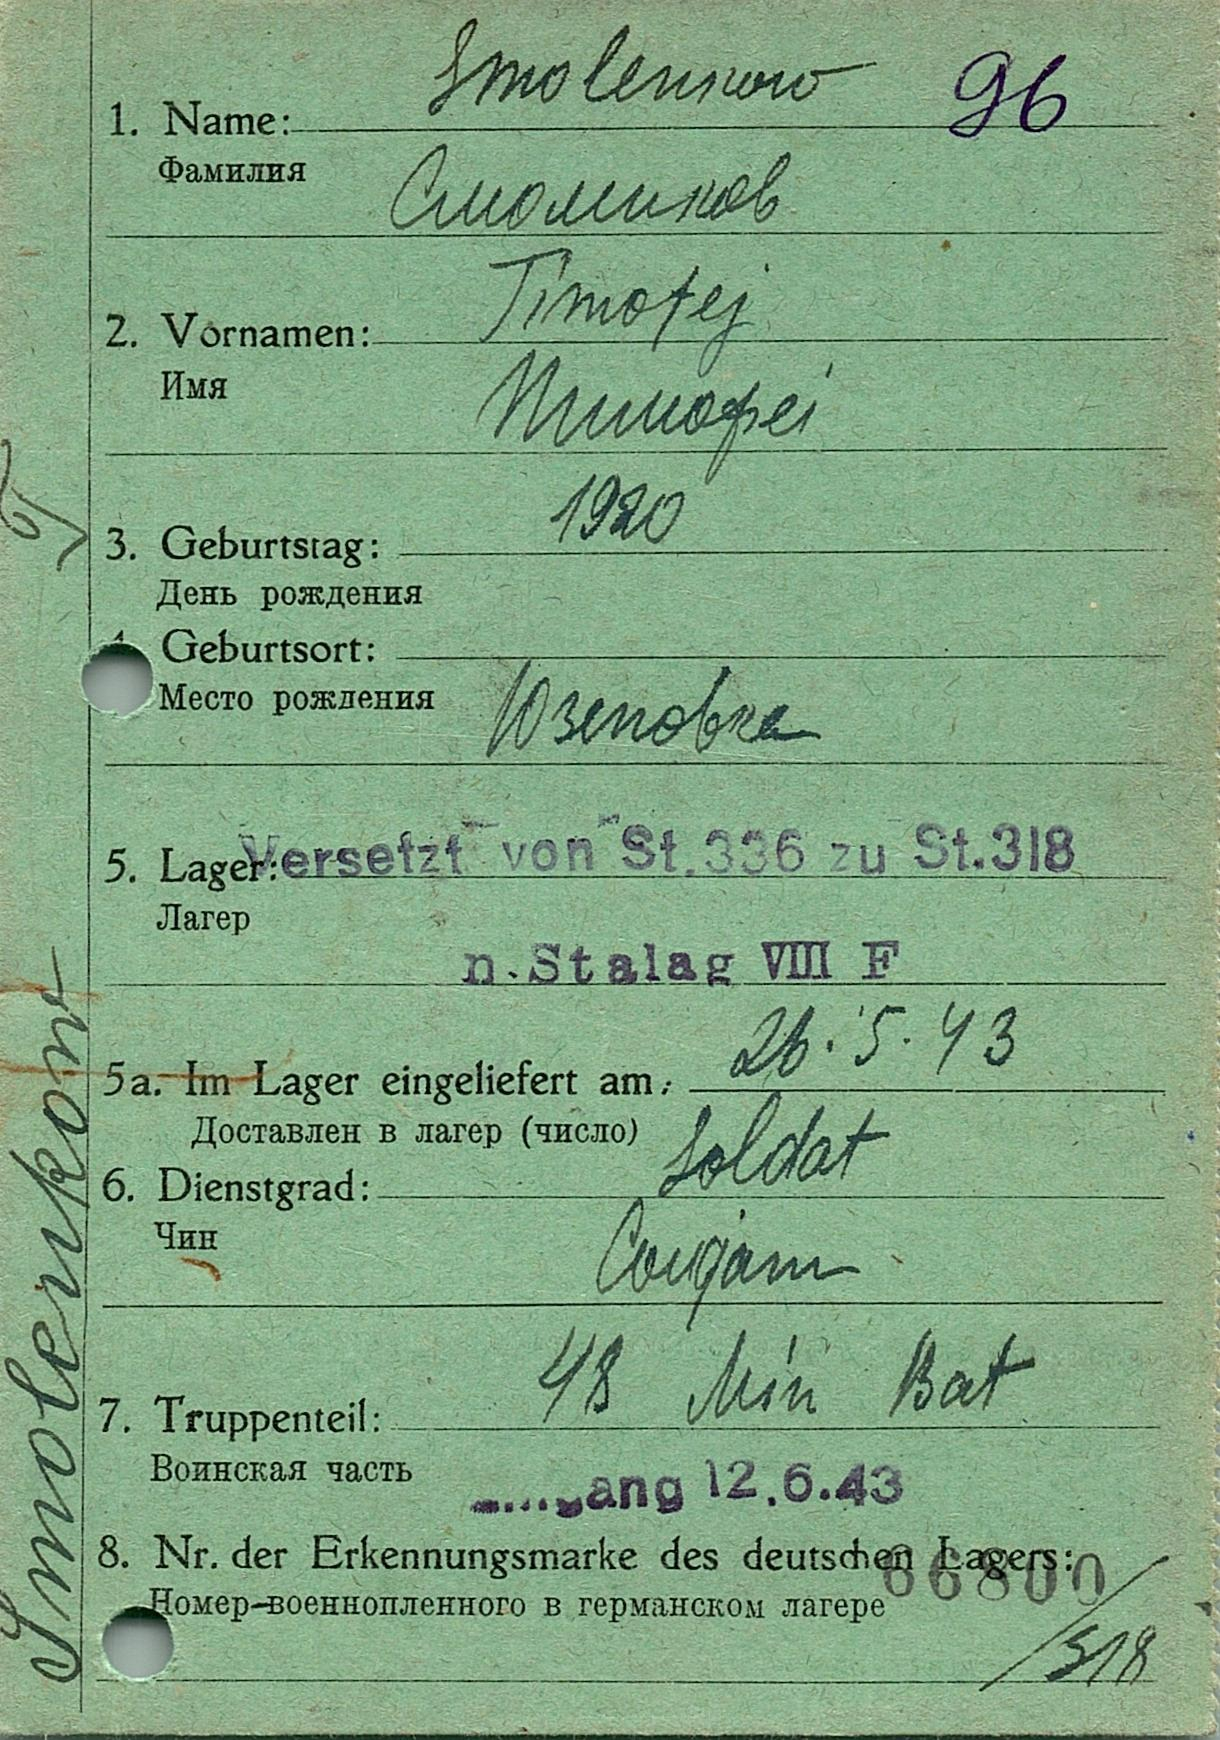 Smolenkow 96
1. Name:
Фамилия
Смоленков
Timofej
2. Vornamen:
Имя
Тимофеi
1920
3. Geburtstag:
День рождения
4. Geburtsort:
Место рождения
Юзеповка
5. Lager: Versetzt von St.336 zu St.318
Лагер
n. Stalag VIII F
5a. Im Lager eingeliefert am: 26.5.43
Доставлен в лагер (число)
Soldat
6. Dienstgrad:
Чин
Солдат
48 Min Bat
7. Truppenteil:
Воинская часть
ang 12.6.43
8. Nr. der Erkennungsmarke des deutschen Lagers:
66800
Номер военнопленного в германском лагере
/318
Smolenkow T